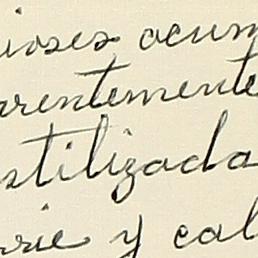 ioses acum
arentemente
stilizada
rie y cal